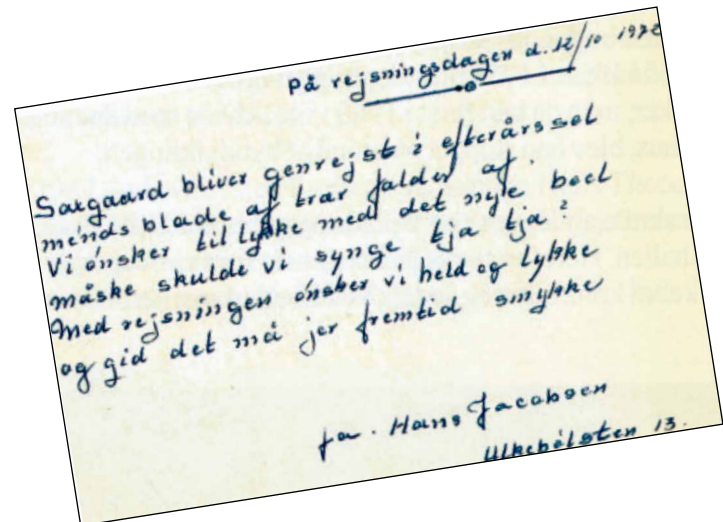 På rejsningsdagen d. 12/10 1972
Sargaard bliver genrejst i efterårssol
mens blade af trær falder af
Vi ønsker tillykke med det nyle boel
måske skulde vi synge tja tja?
Med rejsningen ønsker vi held og lykke
og gid det må jer fremtid smykke
fa. Hans Jacobsen
Ulkebølsten 13.